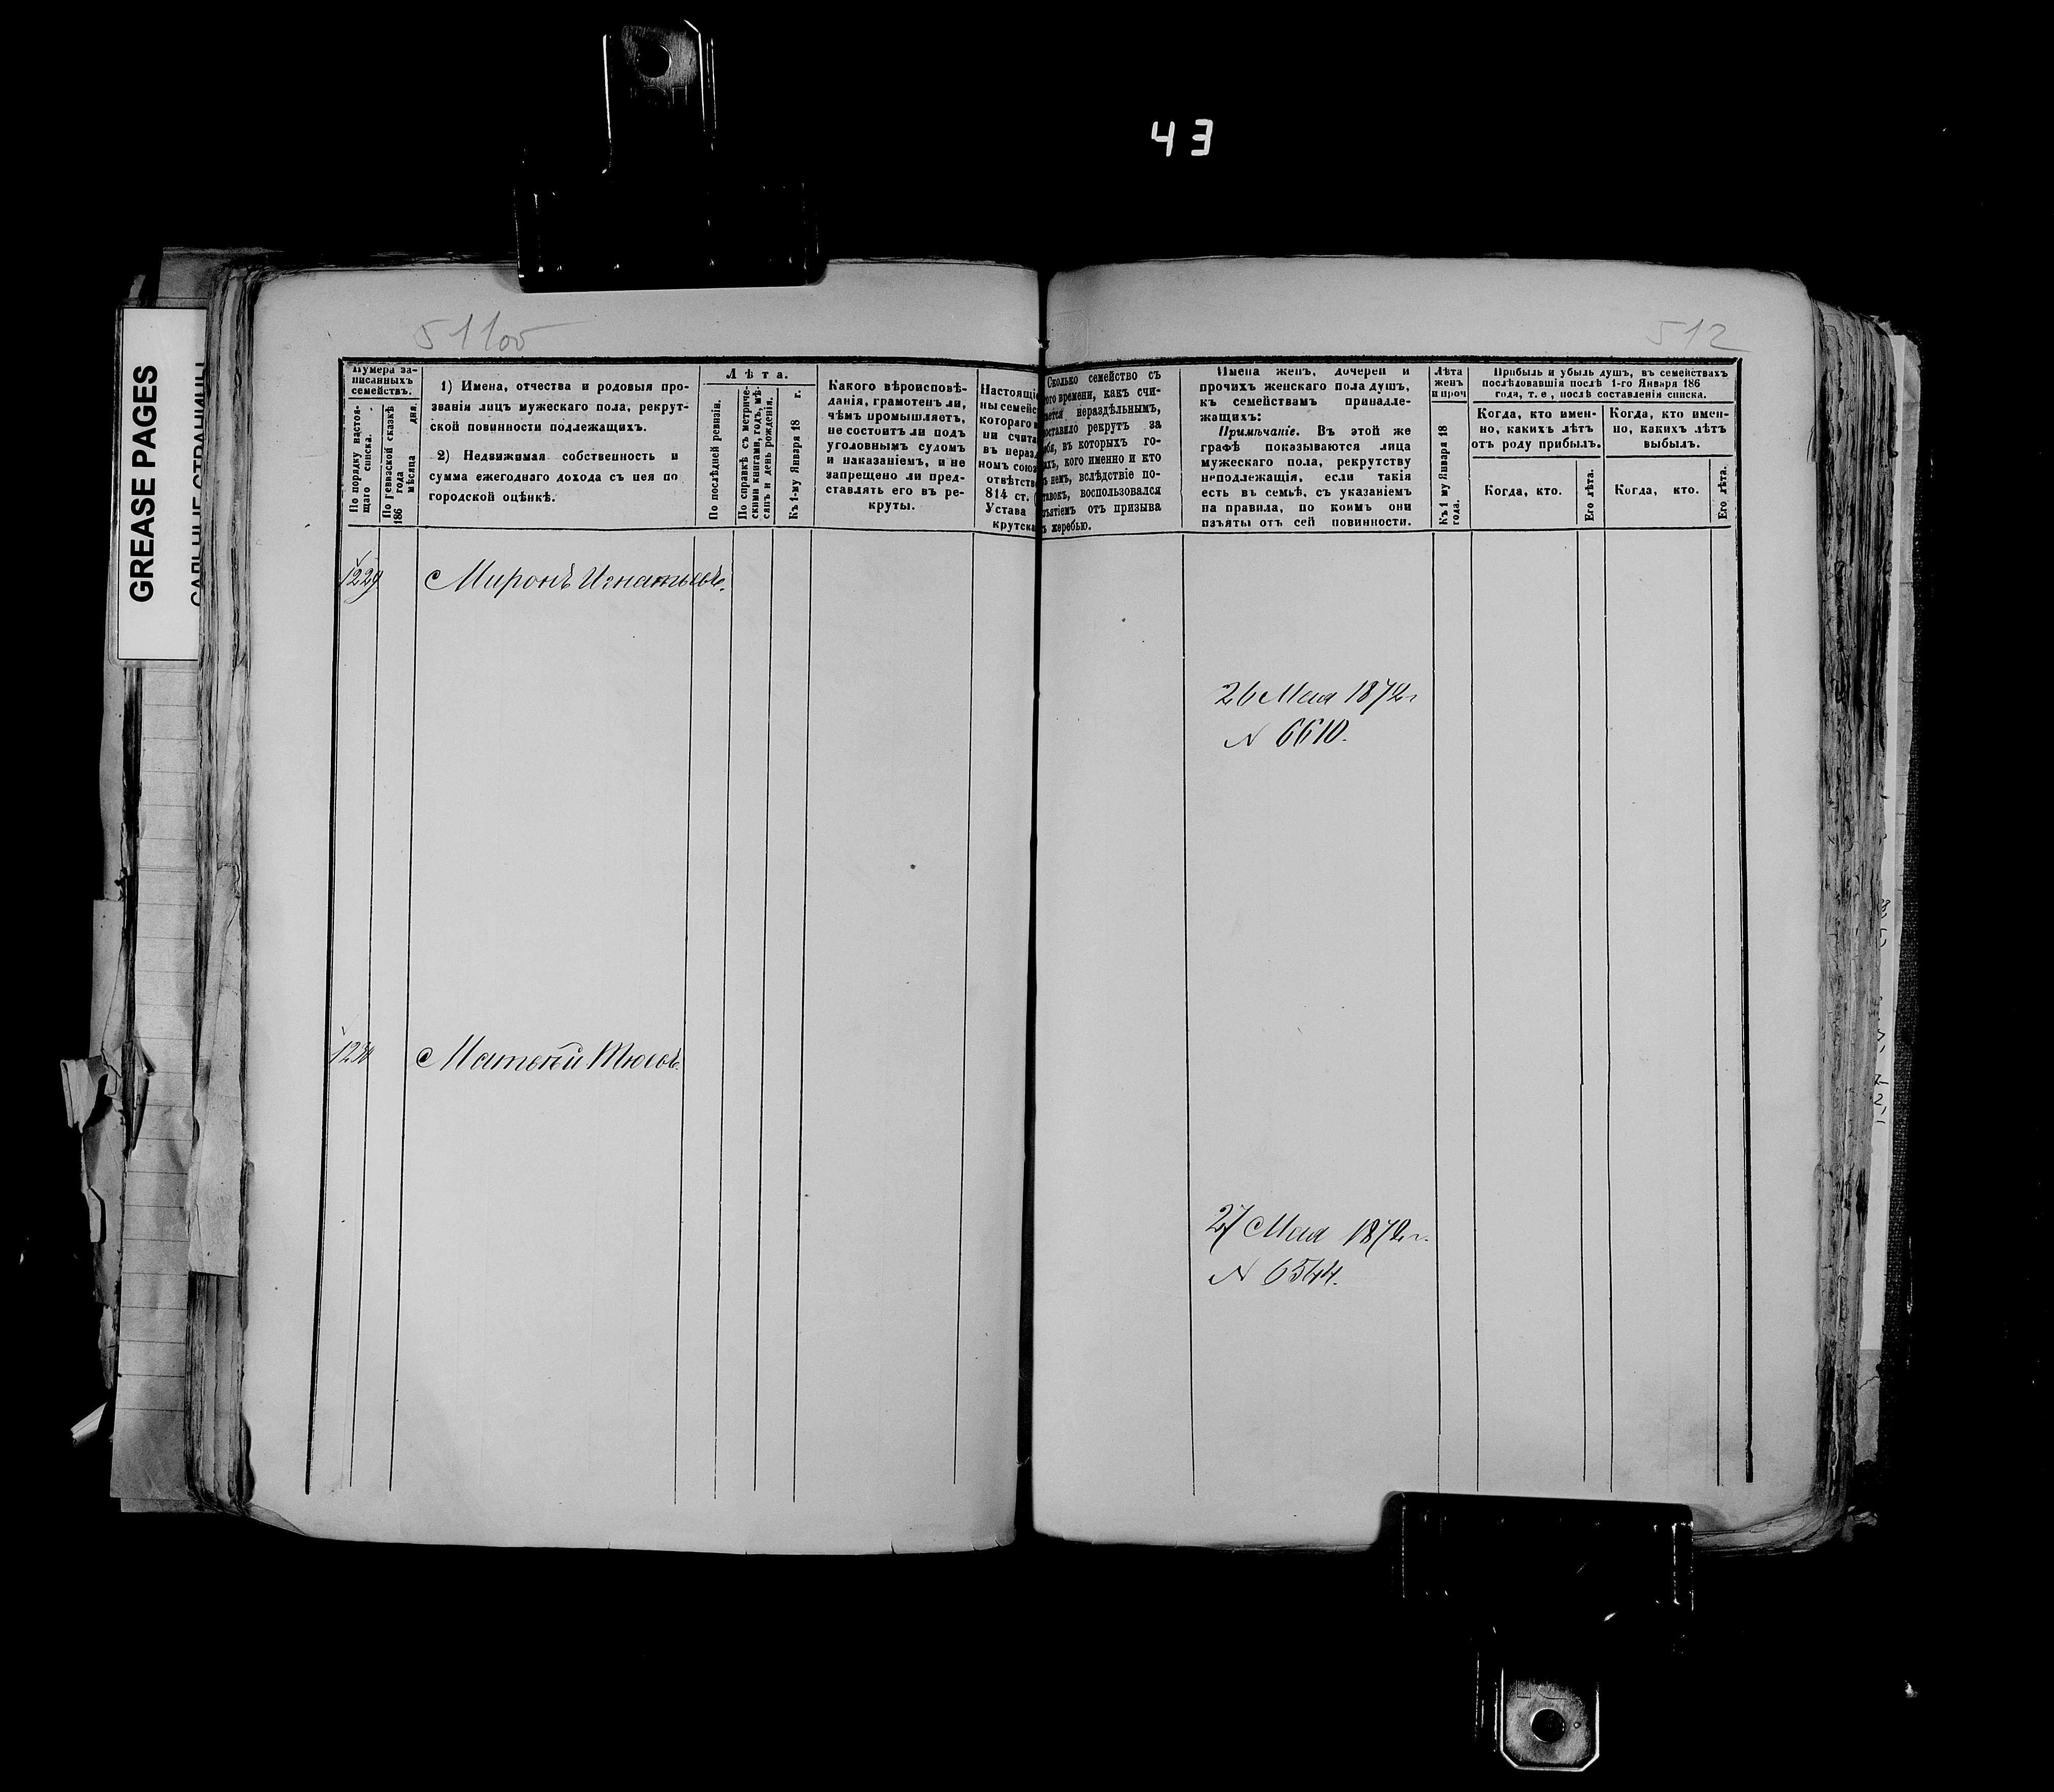 43
GREASE PAGES
511об
512
Нумера за-
писанныхъ
семействъ.
По порядку настоя-
щаго списка.
По ревизской сказкѣ
186 года
мѣсяца дня.
1) Имена, отчества и родовыя про-
званія лицъ мужескаго пола, рекрут-
ской повинности подлежащихъ.
2) Недвижимая собственность и
сумма ежегоднаго дохода съ нея по
городской оцѣнкѣ.
Лѣта.
По послѣдней ревизіи.
По справкѣ съ метриче-
скими книгами, годъ, мѣ-
сяцъ и день рожденія.
Къ 1-му Января 18 г.
Какого вѣроисповѣ-
данія, грамотенъ ли,
чѣмъ промышляетъ,
не состоитъ ли подъ
уголовнымъ судомъ
и наказаніемъ, и не
запрещено ли пред-
ставлять его въ ре-
круты.
Настоящі
ны семейс
котораго
ни счита
въ нераз
номъ союз
отвѣтств
814 ст.
Устава
крутска
Сколько семейство съ
того времени, какъ счи-
тается нераздѣльнымъ,
поставило рекрутъ за
себя, въ которыхъ го-
дахъ, кого именно и кто
въ немъ, вслѣдствіе по-
ставокъ, воспользовался
изъятіемъ отъ призыва
къ жеребью.
Имена женъ, дочерей и
прочихъ женскаго пола душъ,
къ семействамъ принадле-
жащихъ:
Примѣчаніе. Въ этой же
графѣ показываются лица
мужескаго пола, рекрутству
неподлежащія, если такія
есть въ семьѣ, съ указаніемъ
на правила, по коимъ они
изъяты отъ сей повинности.
Лѣта
женъ
и проч
Къ 1 му Января 18
года.
Прибыль и убыль душъ, въ семействахъ
послѣдовавшія послѣ 1-го Января 186
года, т. е , послѣ составленія списка.
Когда, кто имен-
но, какихъ лѣтъ
отъ роду прибылъ.
Когда, кто имен-
но, какихъ лѣтъ
выбылъ.
Когда, кто.
Его лѣта.
Когда, кто.
Его лѣта.
1229
Миронъ Игнатьевъ.
26 Мая 1872 г
N 6610.
1230
Матвѣй
27 Мая 1872 г.
N 6544.